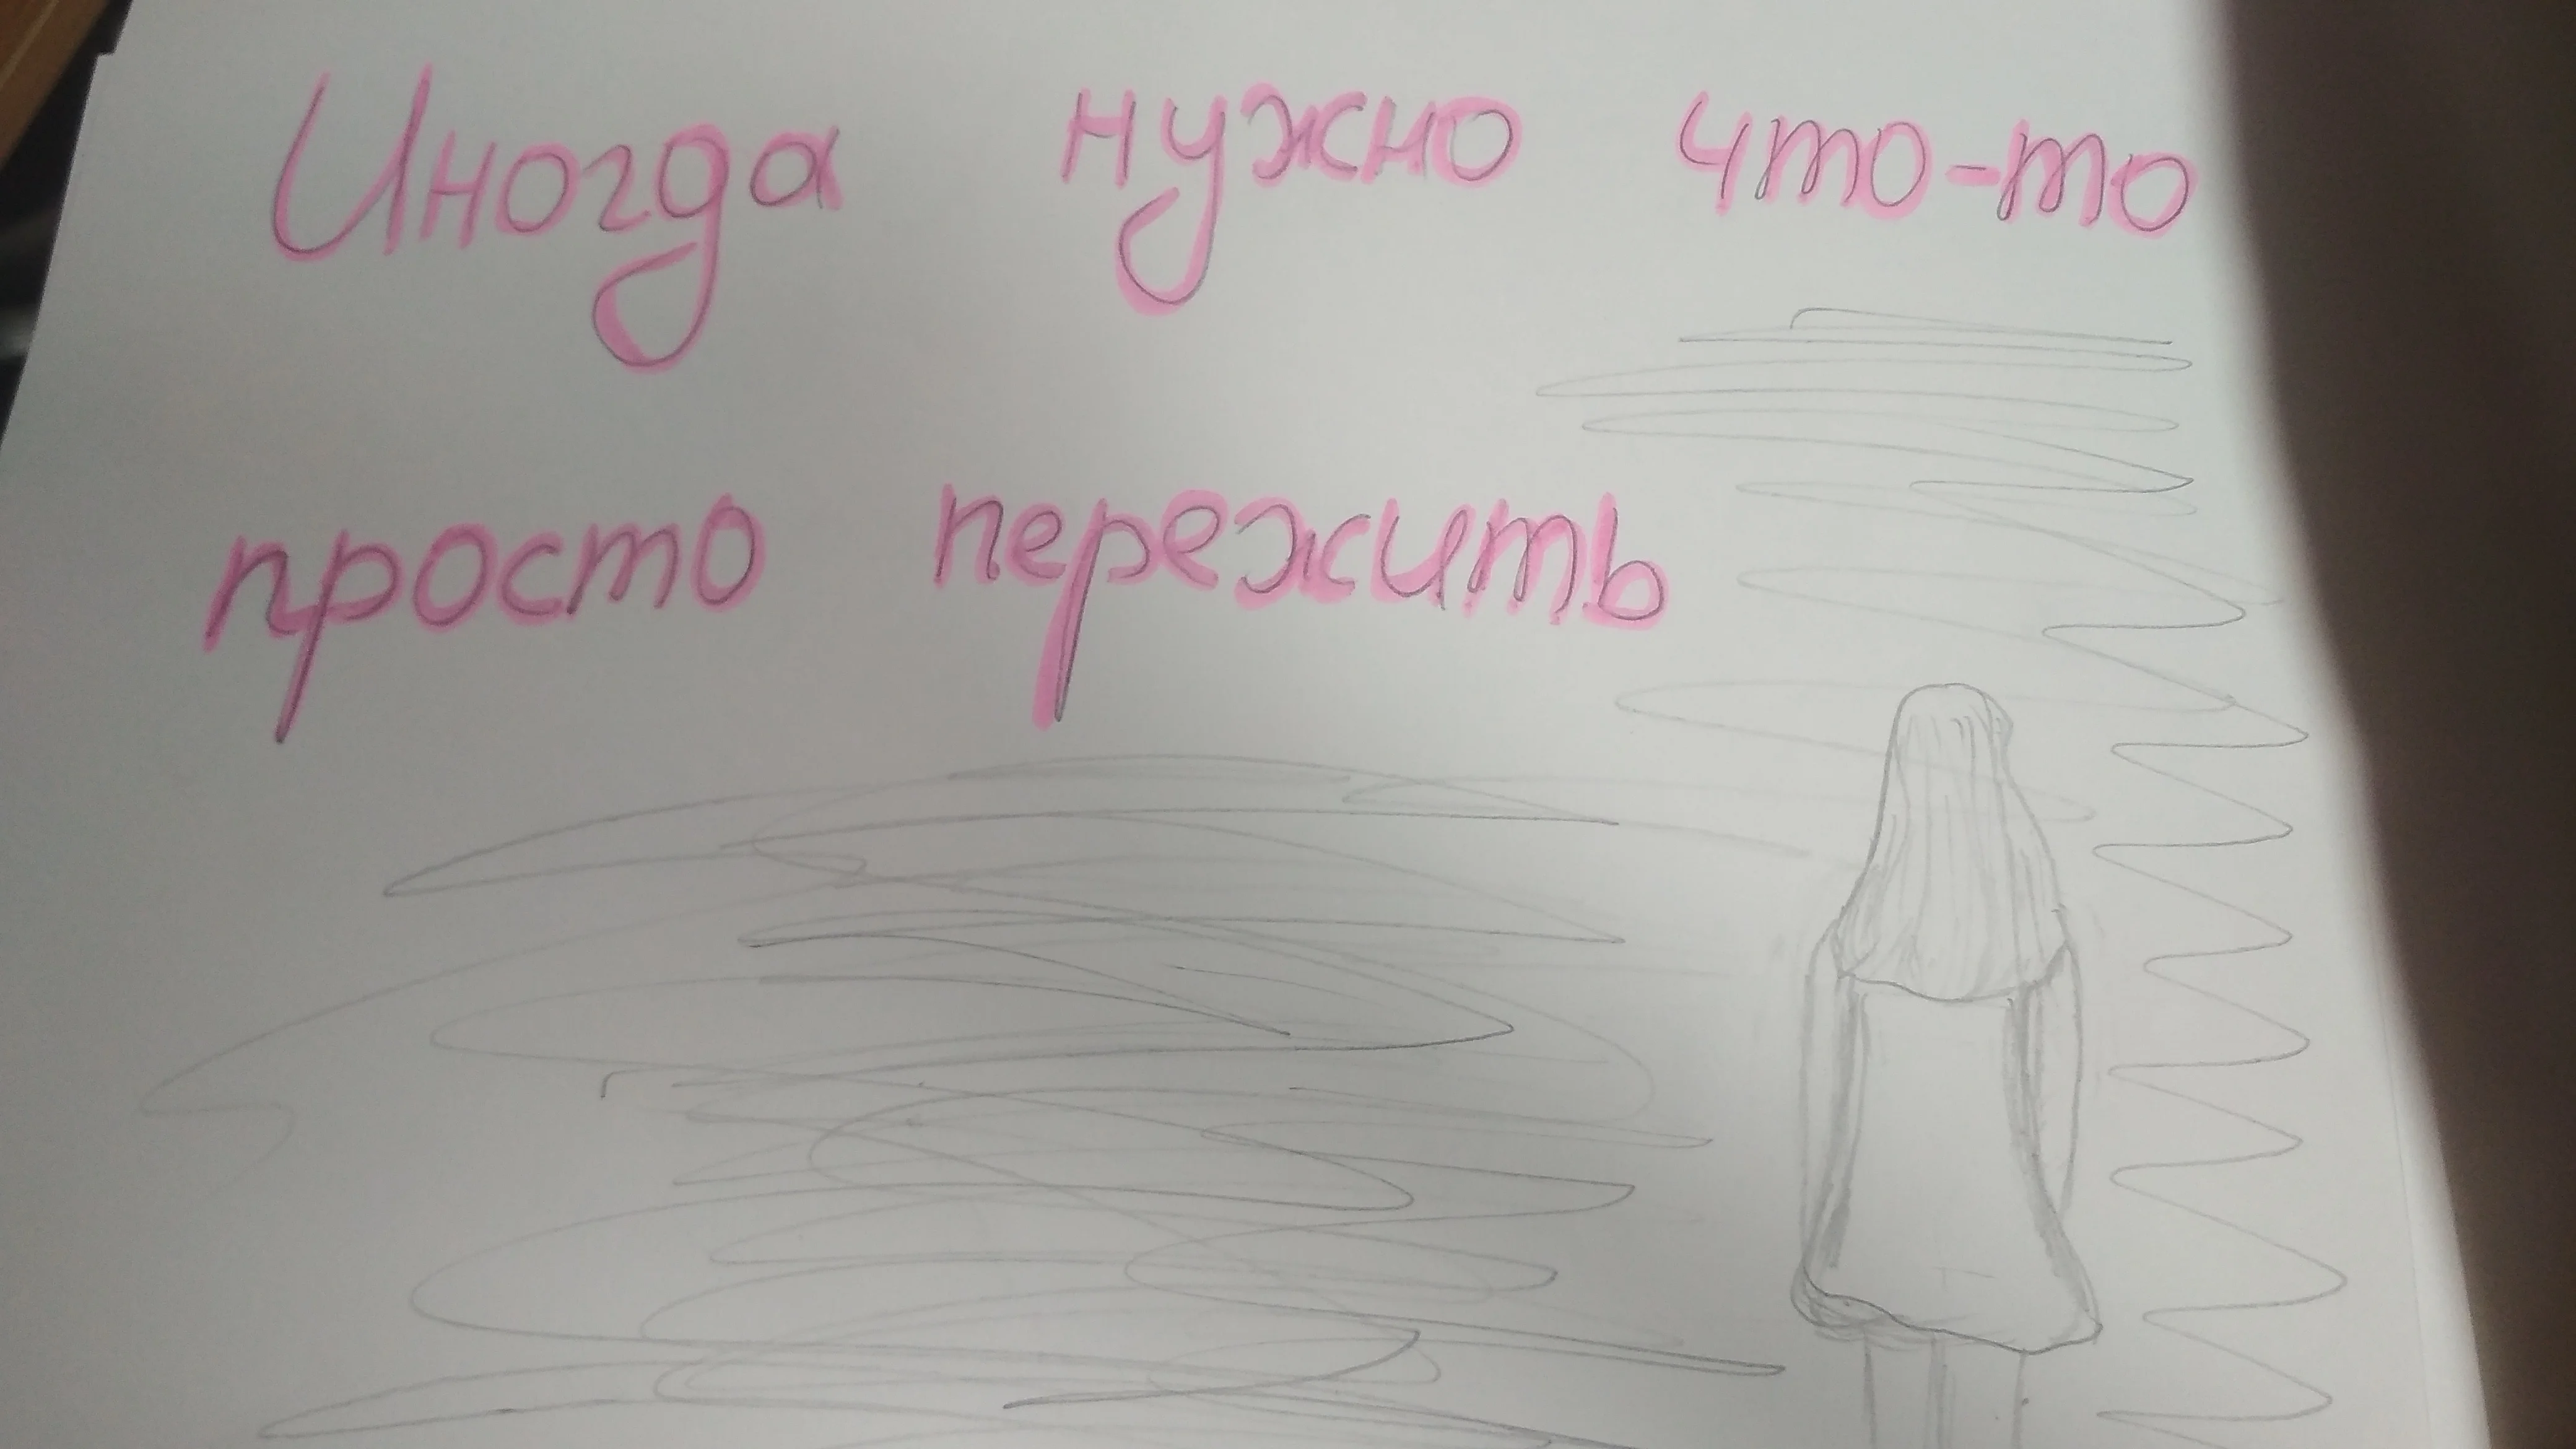 Иногда нужно что-то
просто пережить